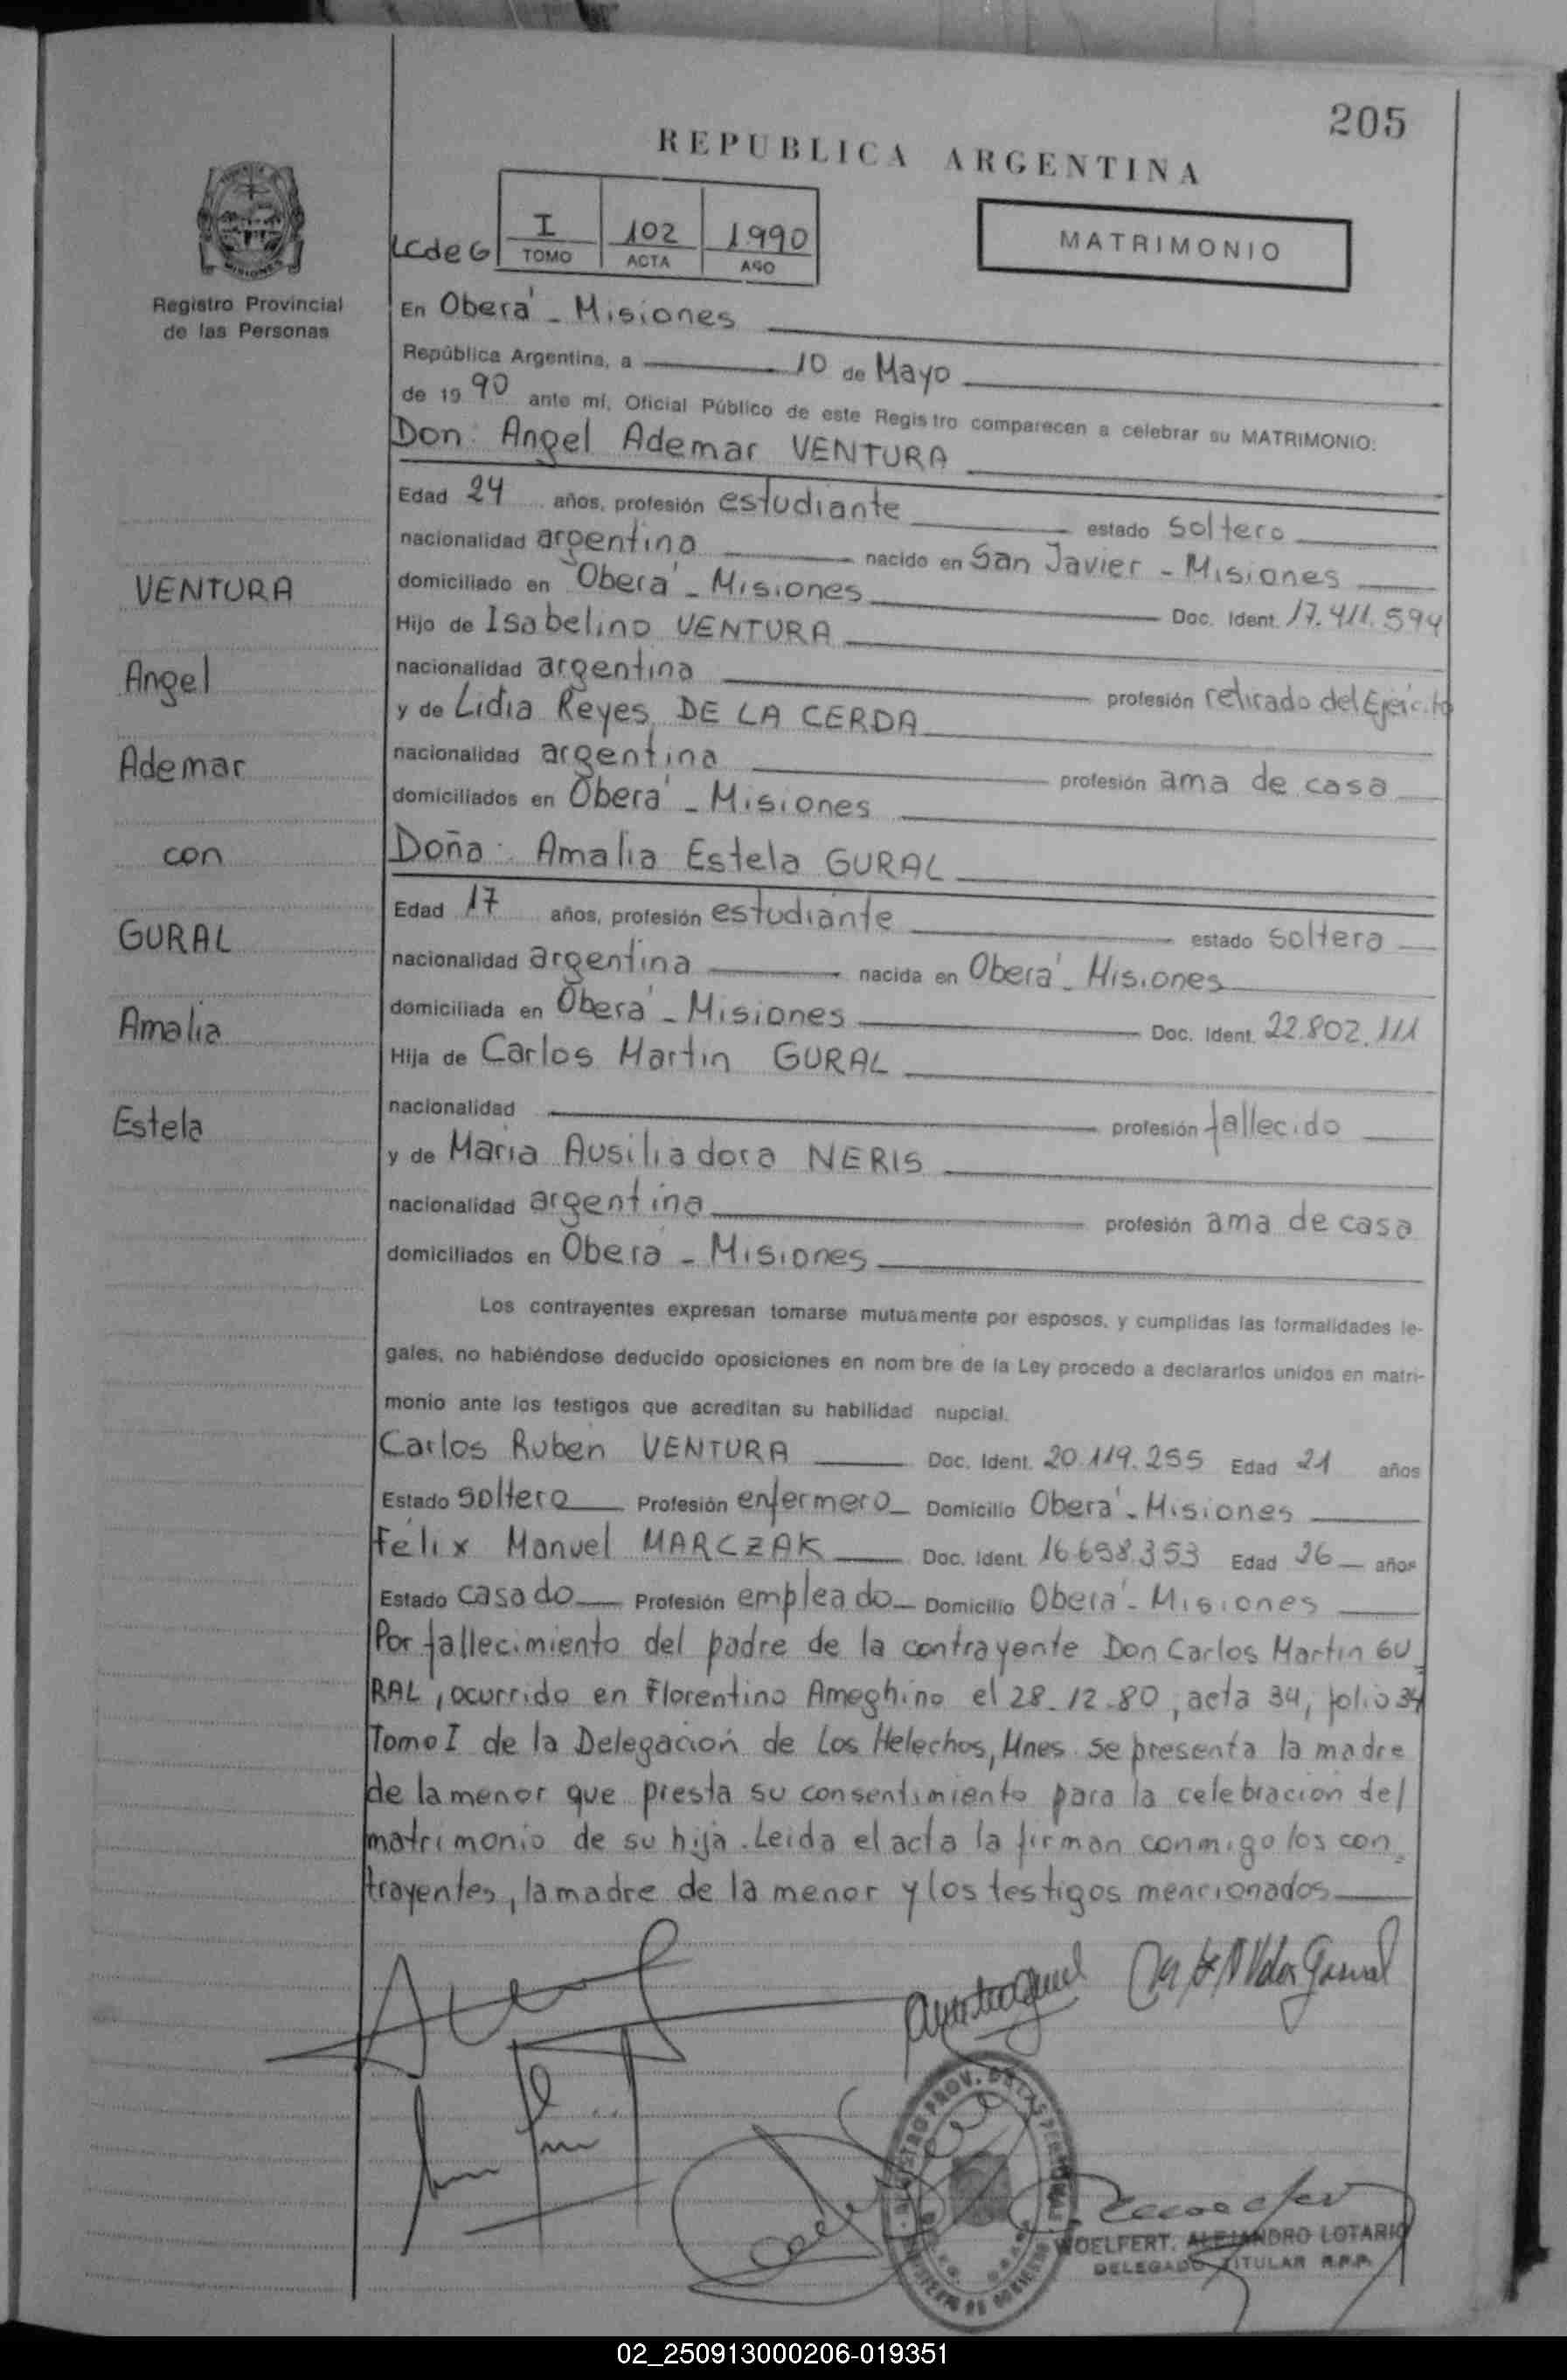 205
REPUBLICA ARGENTINA
LCdeG
I 102 1990
TOMO ACTA AÑO
MATRIMONIO
MISIONES
Registro Provincial
de las Personas
En Oberá - Misiones
República Argentina, a 10 de Mayo
de 19 90 ante mí, Oficial Público de este Registro comparecen a celebrar su MATRIMONIO:
Don: Angel Ademar VENTURA
Edad 24 años, profesión estudiante estado soltero
nacionalidad argentina nacido en San Javier - Misiones
domiciliado en Oberá - Misiones Doc. Ident. 17.411.594
Hijo de Isabelino VENTURA
nacionalidad argentina profesión retirado del Ejercito
y de Lidia Reyes DE LA CERDA
nacionalidad argentina profesión ama de casa
domiciliados en Oberá - Misiones
Doña: Amalia Estela GURAL
Edad 17 años, profesión estudiante estado soltera
nacionalidad argentina nacida en Oberá - Misiones
domiciliada en Oberá - Misiones Doc. Ident. 22.802.111
Hija de Carlos Martin GURAL
nacionalidad profesión fallecido
y de Maria Ausiliadora NERIS
nacionalidad argentina profesión ama de casa
domiciliados en Obera - Misiones
VENTURA
Angel
Ademar
con
GURAL
Amalia
Estela
Los contrayentes expresan tomarse mutuamente por esposos, y cumplidas las formalidades le-
gales, no habiéndose deducido oposiciones en nombre de la Ley procedo a declararlos unidos en matri-
monio ante los testigos que acreditan su habilidad nupcial.
Carlos Ruben VENTURA Doc. Ident. 20.119.255 Edad 21 años
Estado soltero Profesión enfermero Domicilio Oberá - Misiones
Félix Manuel MARCZAK Doc. Ident. 16.698.353 Edad 26 años
Estado casado Profesión empleado Domicilio Oberá - Misiones
Por fallecimiento del padre de la contrayente Don Carlos Martin GU
RAL, ocurrido en Florentino Ameghino el 28-12-80, acta 34, folio 34
Tomo I de la Delegación de Los Helechos, Mnes. se presenta la madre
de la menor que presta su consentimiento para la celebración del
matrimonio de su hija. Leida el acta la firman conmigo los con
trayentes, la madre de la menor y los testigos mencionados
WOELFERT, ALEJANDRO LOTARIO
DELEGADO TITULAR R.P.P.
02_250913000206-019351